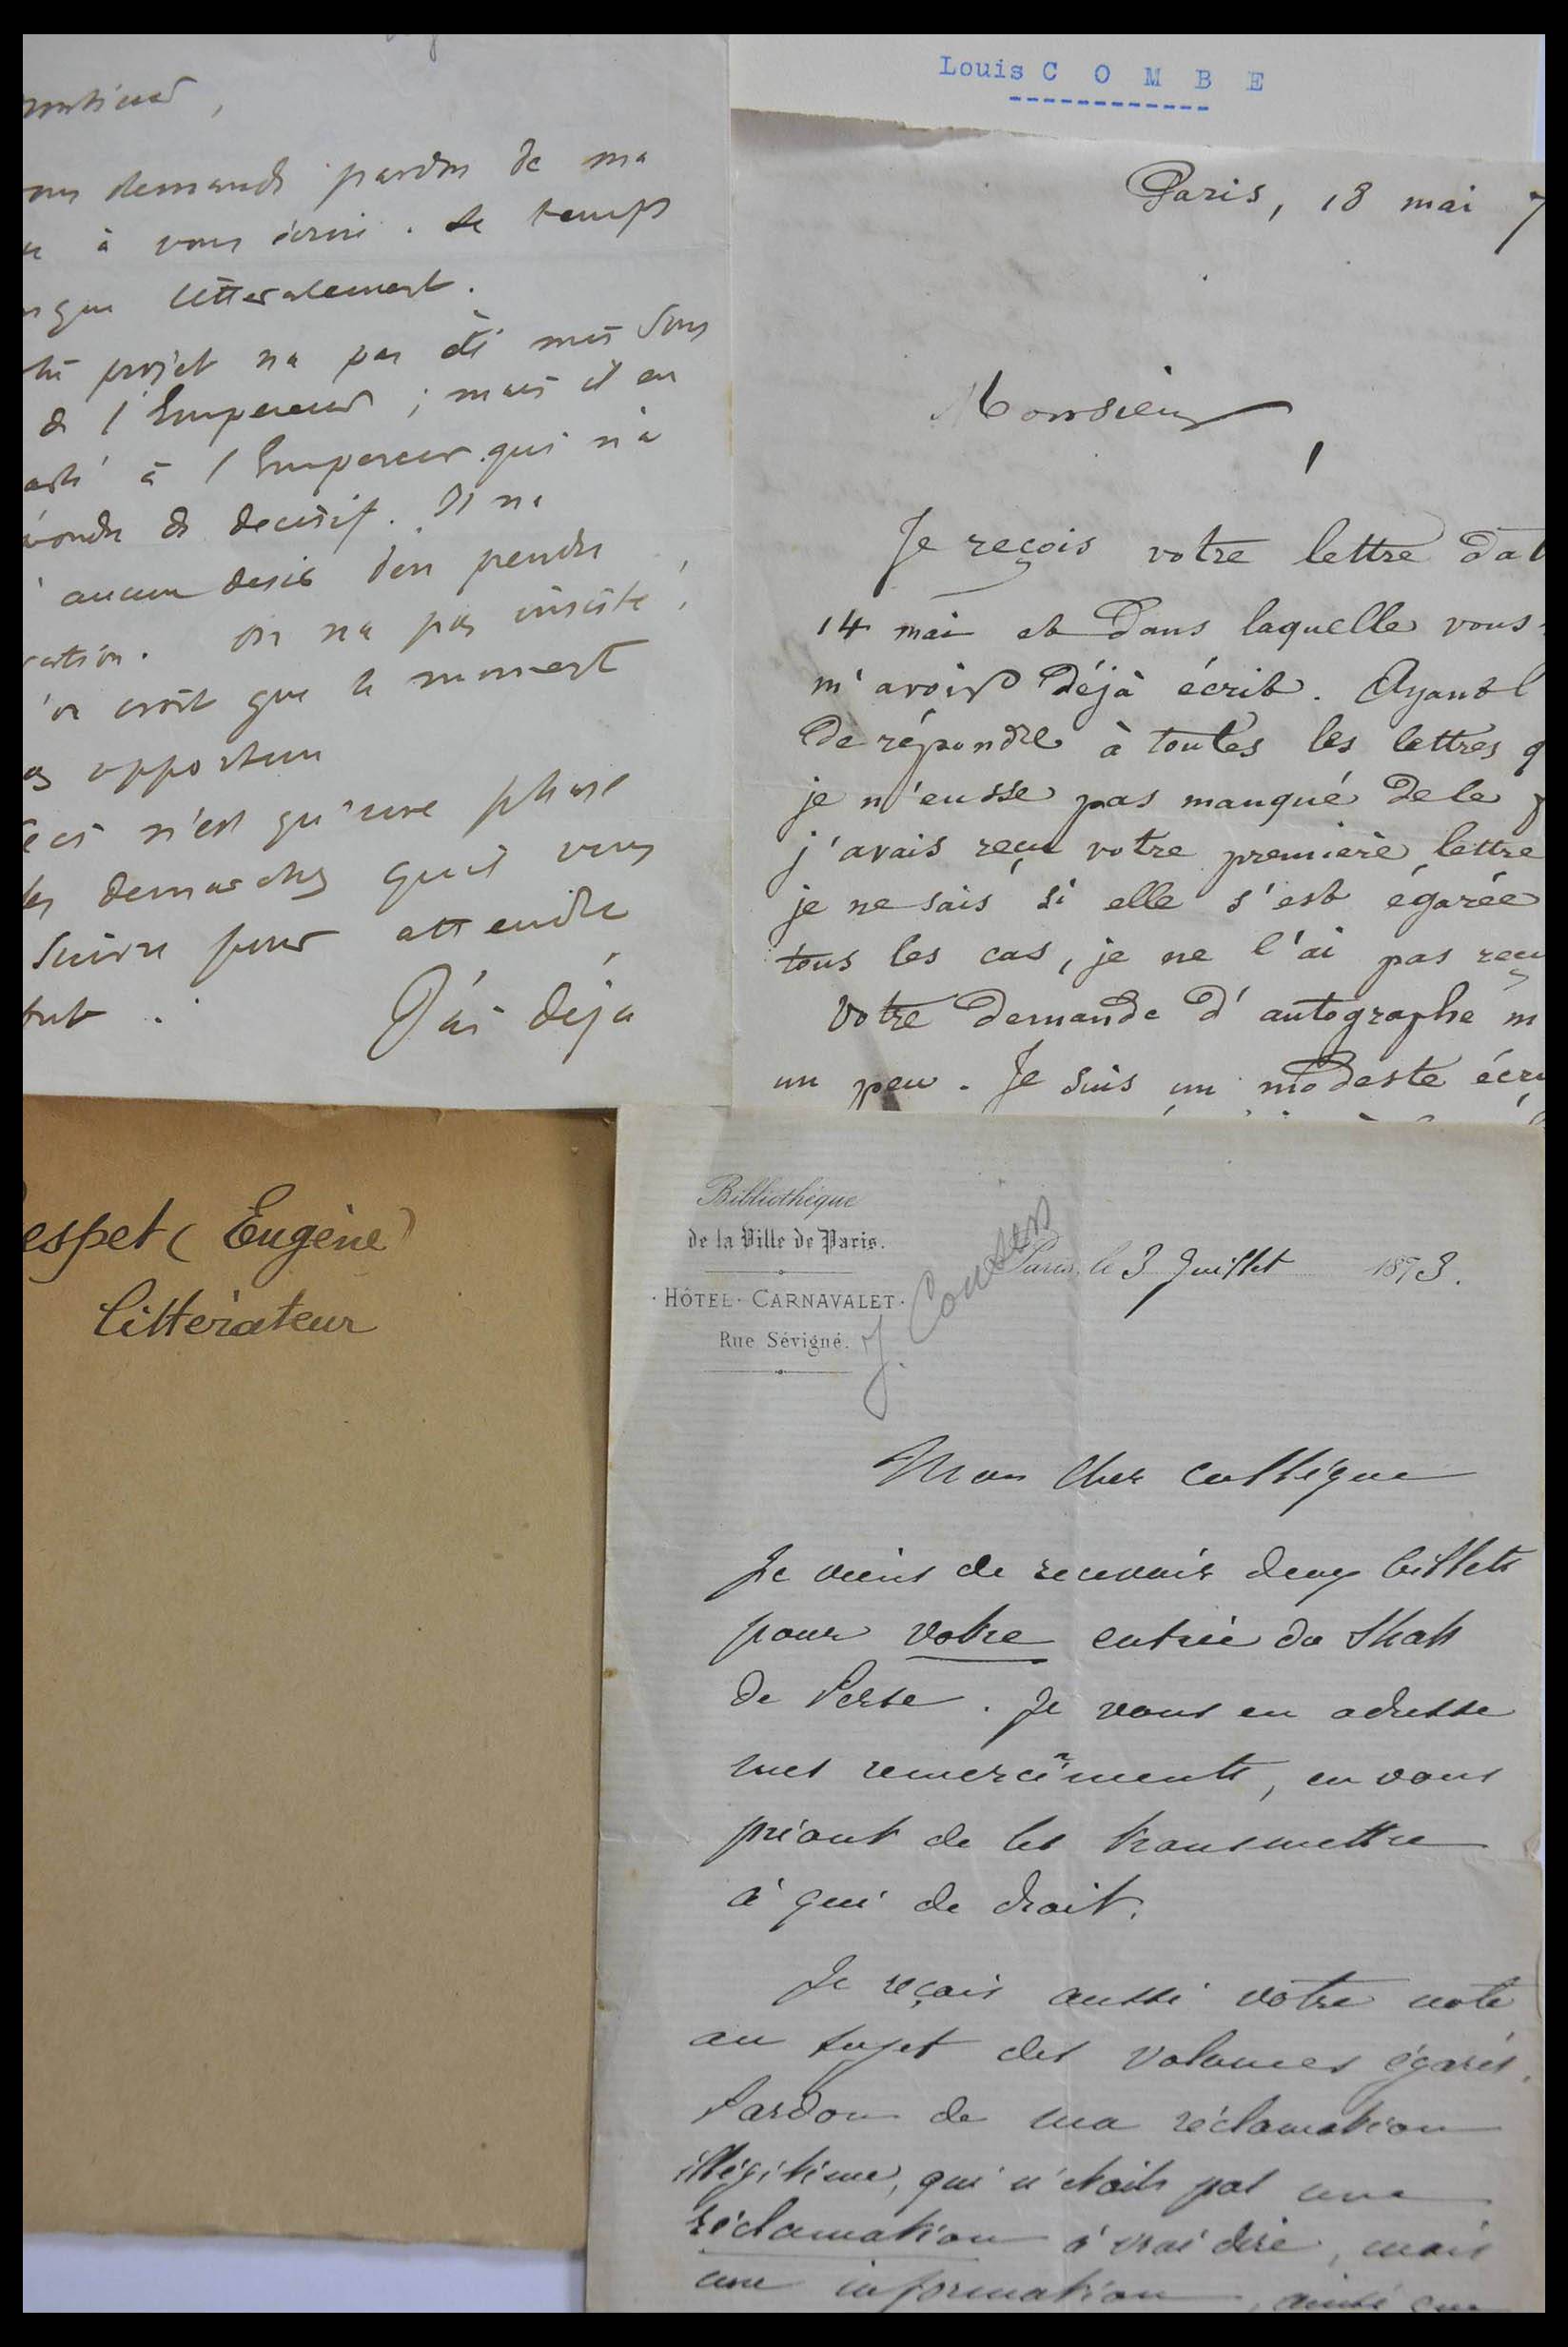 vous demande pardon de ma
à vous écrire. Le temps
litteralement.
projet n'a pas été mis sous
de l'Empereur ; mais il en
à l'Empereur qui n'a
de decisif. Il n'a
aucun desir d'en prendre
on n'a pas insisté,
croit que le moment
opportun
n'est qu'une phase
demarches qu'il vous
suivre pour attendre
J'ai déja
Louis C O M B E
Paris, 18 mai 7
Monsieur,
Je reçois votre lettre dat
14 mai et dans laquelle vous
m'avoir déjà écrit. Ayant l
de répondre à toutes les lettres q
je n'eusse pas manqué de le
j'avais reçu votre première lettre
je ne sais si elle s'est égarée
tous les cas, je ne l'ai pas reçu
Votre demande d'autographe m
un peu. Je suis un modeste écri
espet (Eugène)
littérateur
Bibliothèque
de la Ville de Paris.
HÔTEL CARNAVALET
Rue Sévigné.
J. Cousin
Paris, le 3 Juillet 1873.
Mon cher collègue
Je viens de recevoir deux billets
pour votre entrée du Shah
de Perse. Je vous en adresse
mes remercîments, en vous
priant de les transmettre
à qui de droit.
Je reçois aussi votre note
au sujet des volumes égarés.
Pardon de ma réclamation
illégitime, qui n'était pas une
réclamation à vrai dire, mais
une information, ainsi que